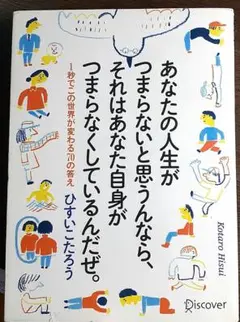 あなたの人生が
つまらないと思うんなら、
それはあなた自身が
つまらなくしているんだぜ。
1秒でこの世界が変わる70の答え
ひすいこたろう
Kotaro Hisui
Discover